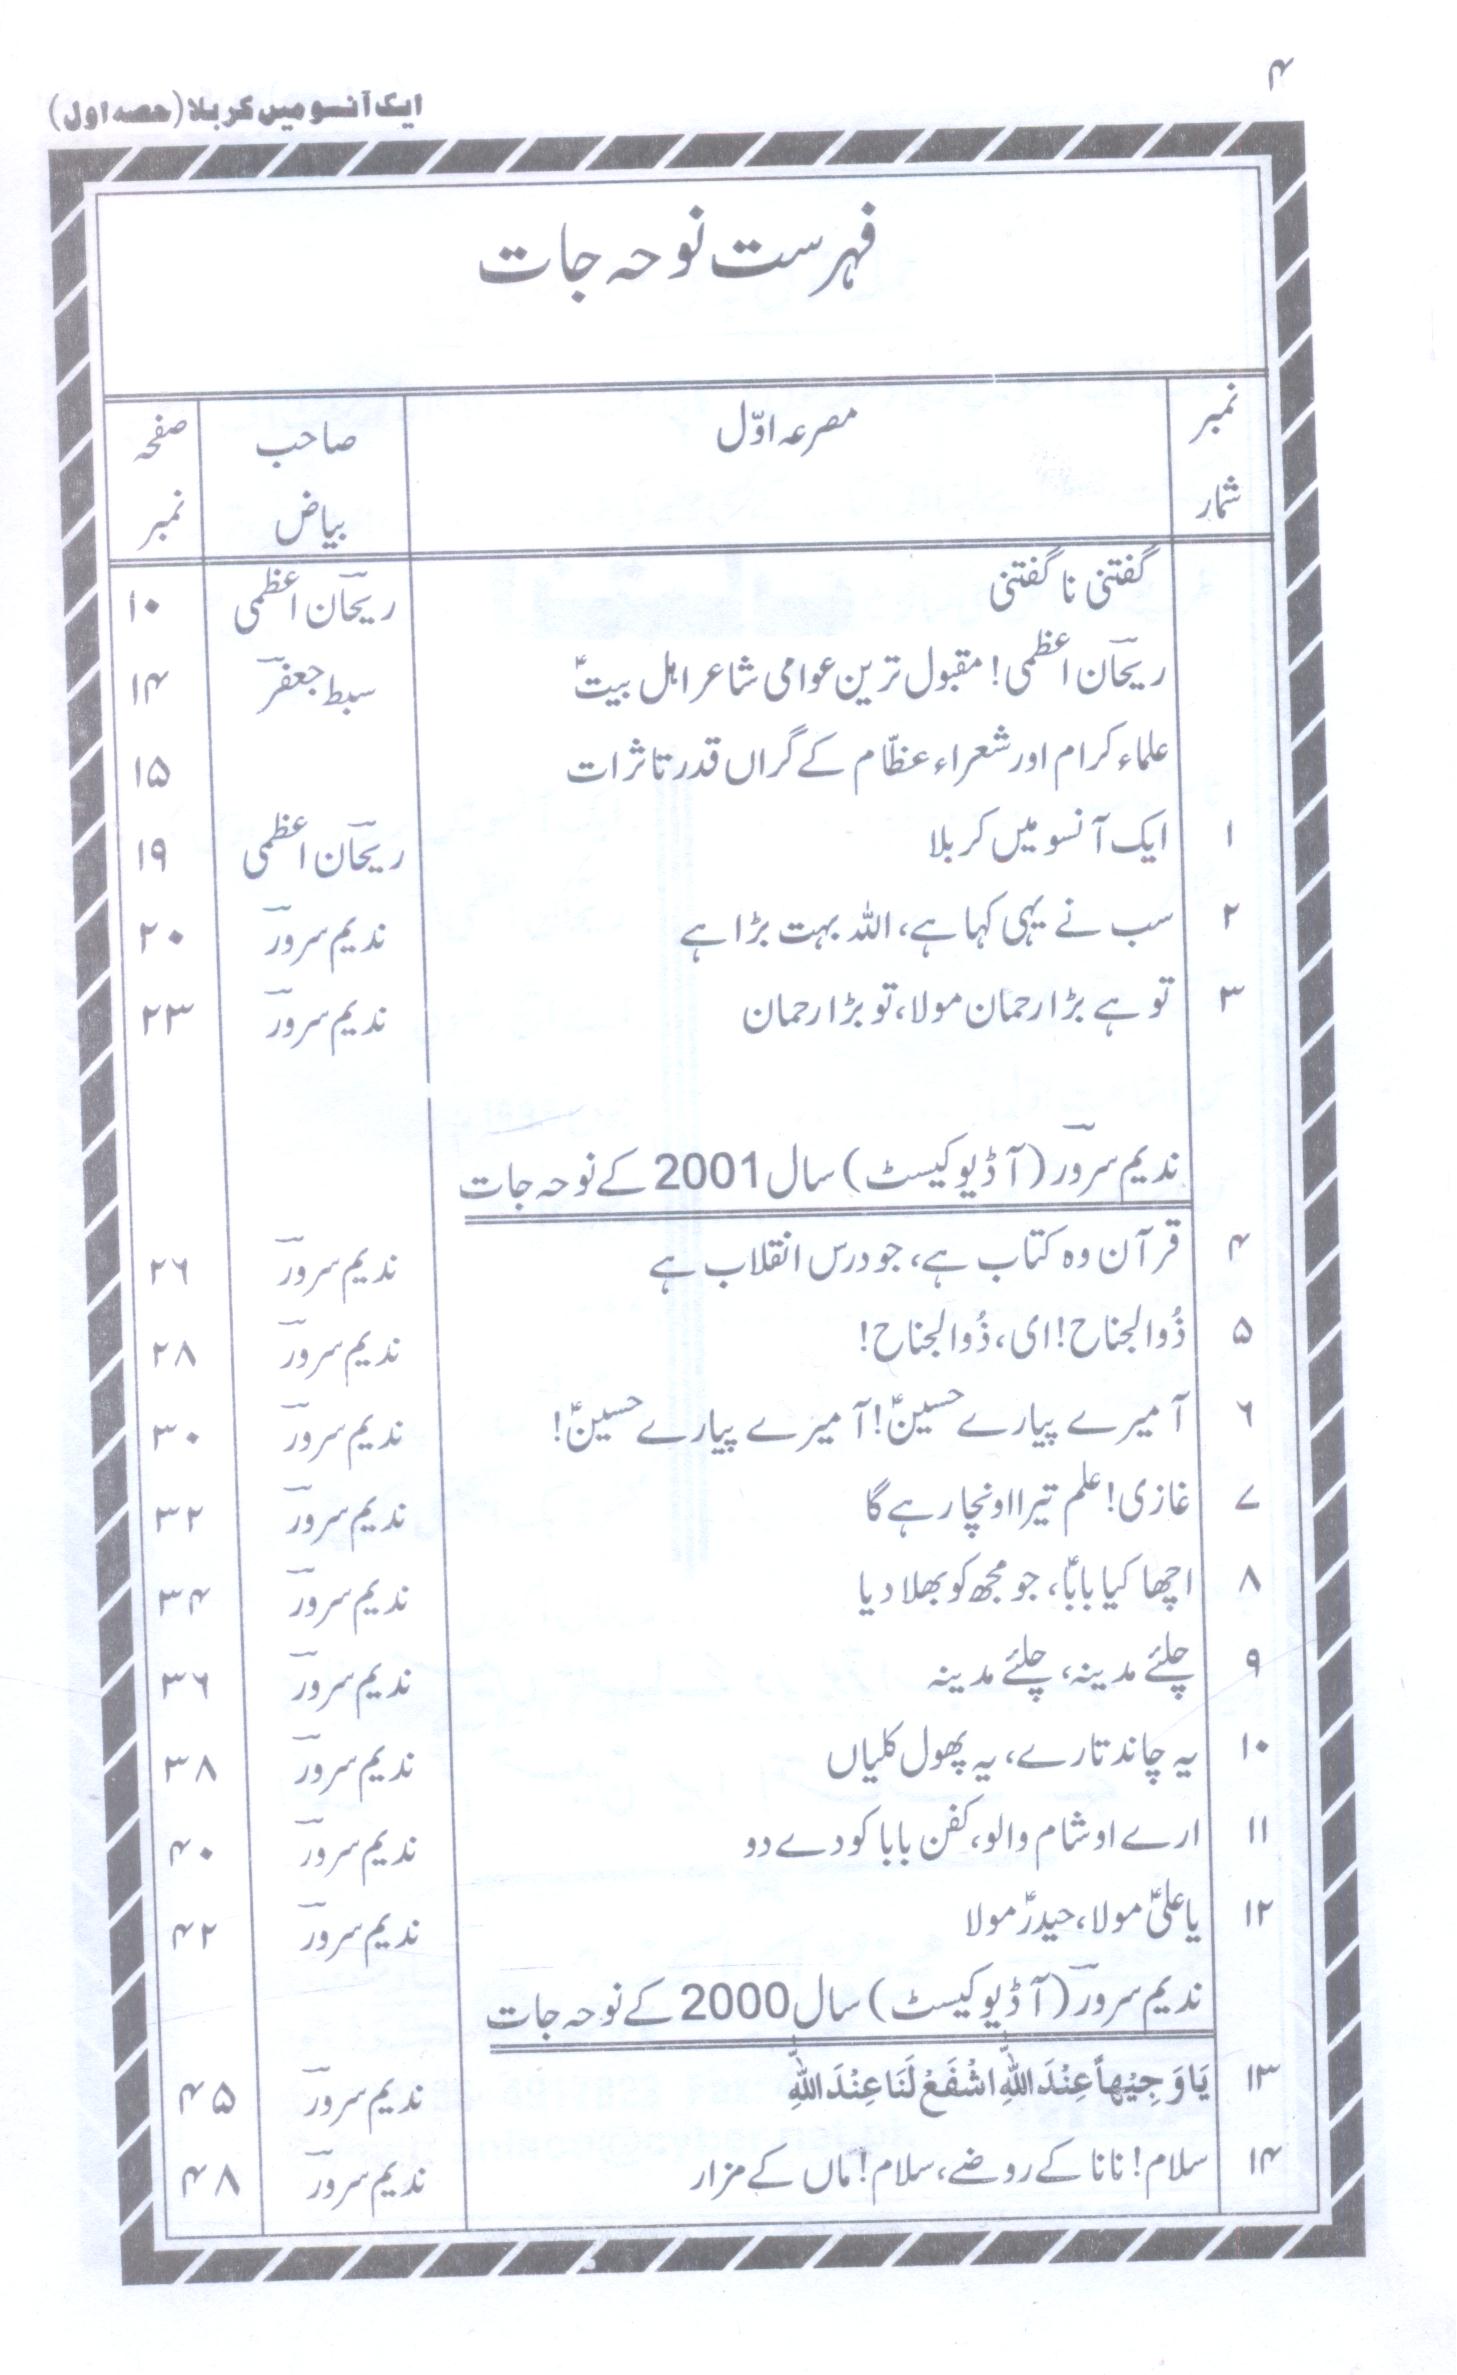 ۴
ایک آنسو میں کربلا (حصہ اول)
فہرست نوحہ جات
نمبر شمار مصرعہ اوّل صاحب بیاض صفحہ نمبر
گفتنی نا گفتنی ریحان اعظمی ۱۰
ریحان اعظمی! مقبول ترین عوامی شاعر اہل بیتؑ سبط جعفر ۱۴
علماء کرام اور شعراء عظّام کے گراں قدر تاثرات ۱۵
۱ ایک آنسو میں کربلا ریحان اعظمی ۱۹
۲ سب نے یہی کہا ہے، اللہ بہت بڑا ہے ندیم سرور ۲۰
۳ تو ہے بڑا رحمان مولا، تو بڑا رحمان ندیم سرور ۲۳
ندیم سرور (آڈیو کیسٹ) سال 2001 کے نوحہ جات
۴ قرآن وہ کتاب ہے، جو درس انقلاب ہے ندیم سرور ۲۶
۵ ذُوالجناح! ای، ذُوالجناح! ندیم سرور ۲۸
۶ آ میرے پیارے حسینؑ! آ میرے پیارے حسینؑ! ندیم سرور ۳۰
۷ غازی! علم تیرا اونچا رہے گا ندیم سرور ۳۲
۸ اچھا کیا باباؑ، جو مجھ کو بھلا دیا ندیم سرور ۳۴
۹ چلئے مدینہ، چلئے مدینہ ندیم سرور ۳۶
۱۰ یہ چاند تارے، یہ پھول کلیاں ندیم سرور ۳۸
۱۱ ارے او شام والو، کفن بابا کو دے دو ندیم سرور ۴۰
۱۲ یا علیؑ مولا، حیدرؑ مولا ندیم سرور ۴۲
ندیم سرور (آڈیو کیسٹ) سال 2000 کے نوحہ جات
۱۳ يَا وَجِيْهاً عِنْدَ اللّٰهِ اشْفَعْ لَنَا عِنْدَ اللّٰهِ ندیم سرور ۴۵
۱۴ سلام! نانا کے روضے، سلام! ماں کے مزار ندیم سرور ۴۸